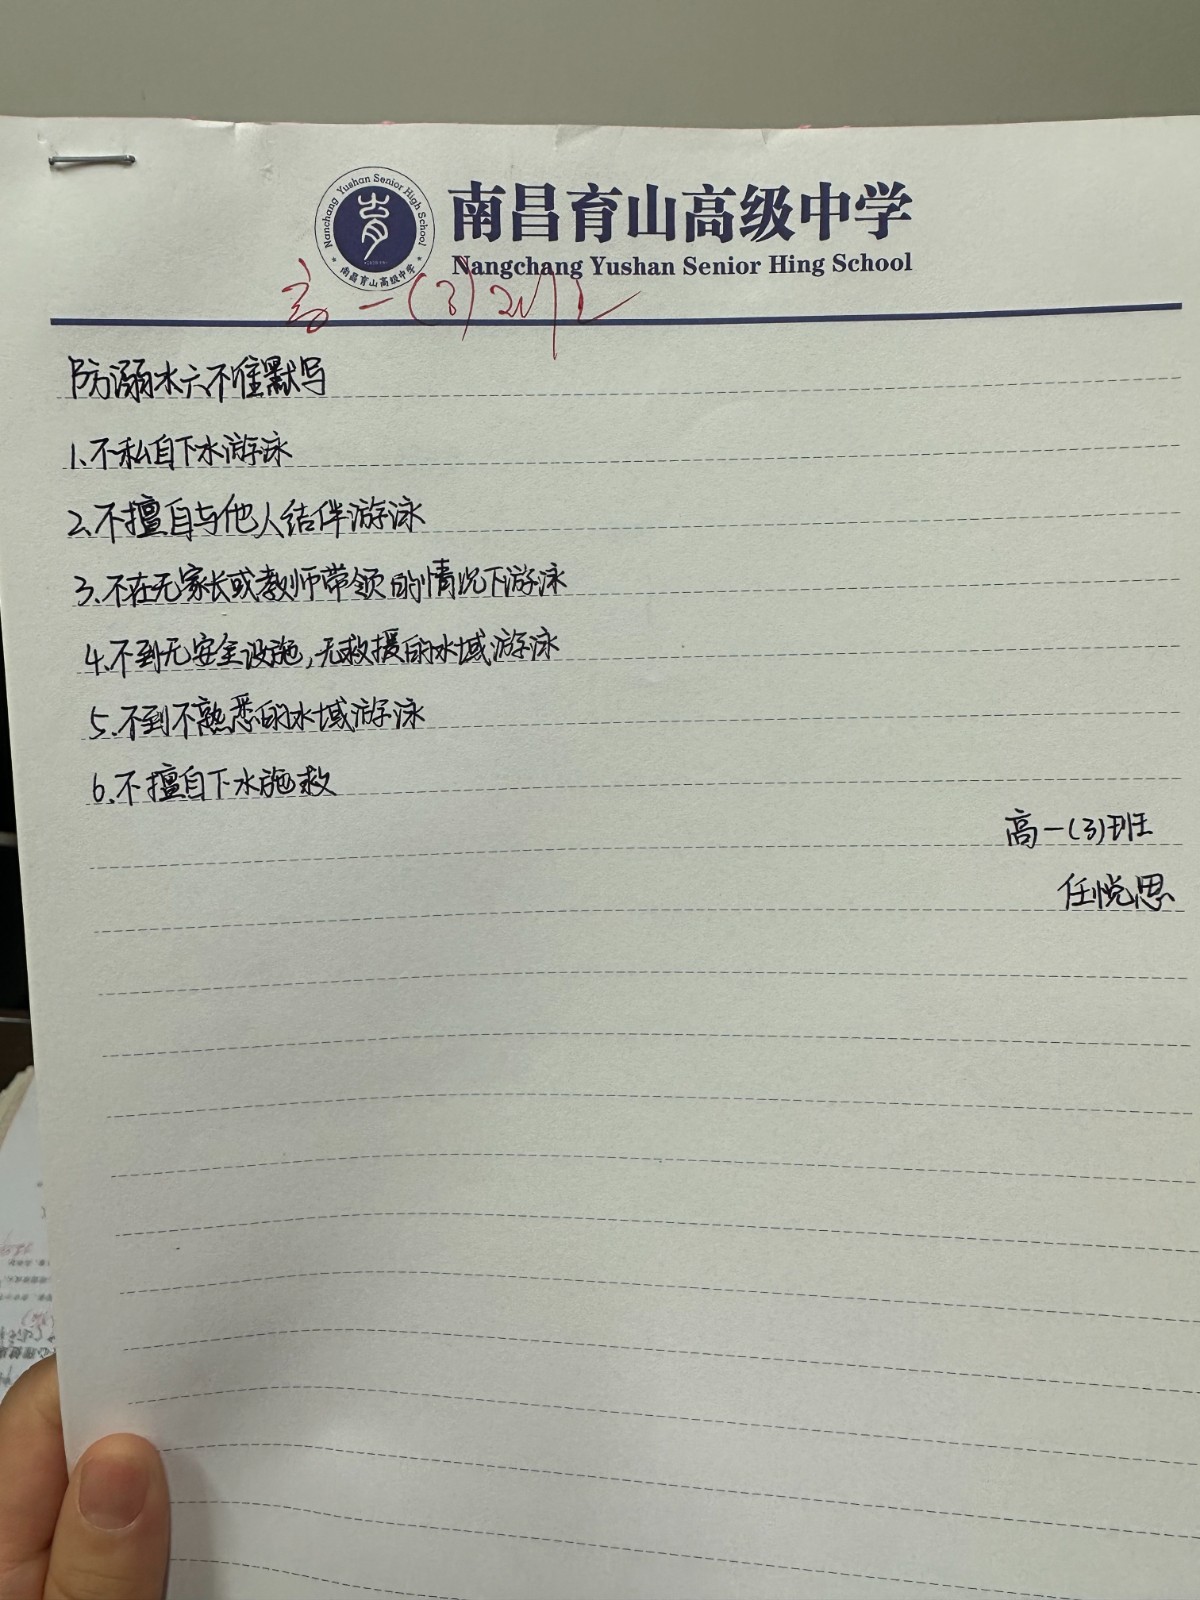 Nanchang Yushan Senior High School
南昌育山高级中学
南昌育山高级中学
Nangchang Yushan Senior Hing School
高一(3)班
防溺水六不准默写
1.不私自下水游泳
2.不擅自与他人结伴游泳
3.不在无家长或教师带领的情况下游泳
4.不到无安全设施,无救援的水域游泳
5.不到不熟悉的水域游泳
6.不擅自下水施救
高一(3)班
任悦思